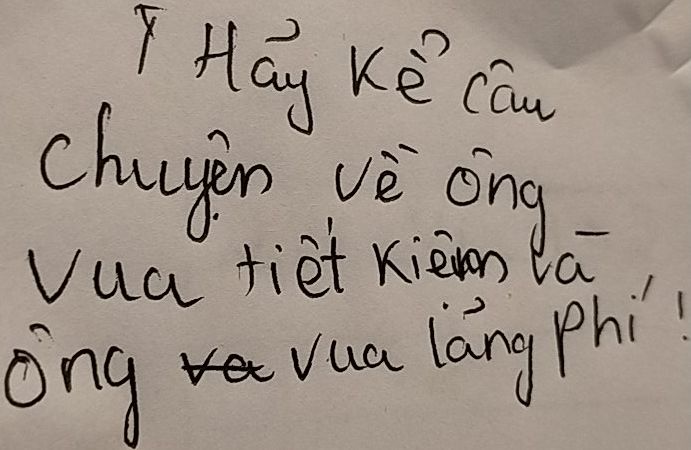 Hảy Kể câu
chuyện về ông
vua tiết kiệm và
ông vua lảng phí!